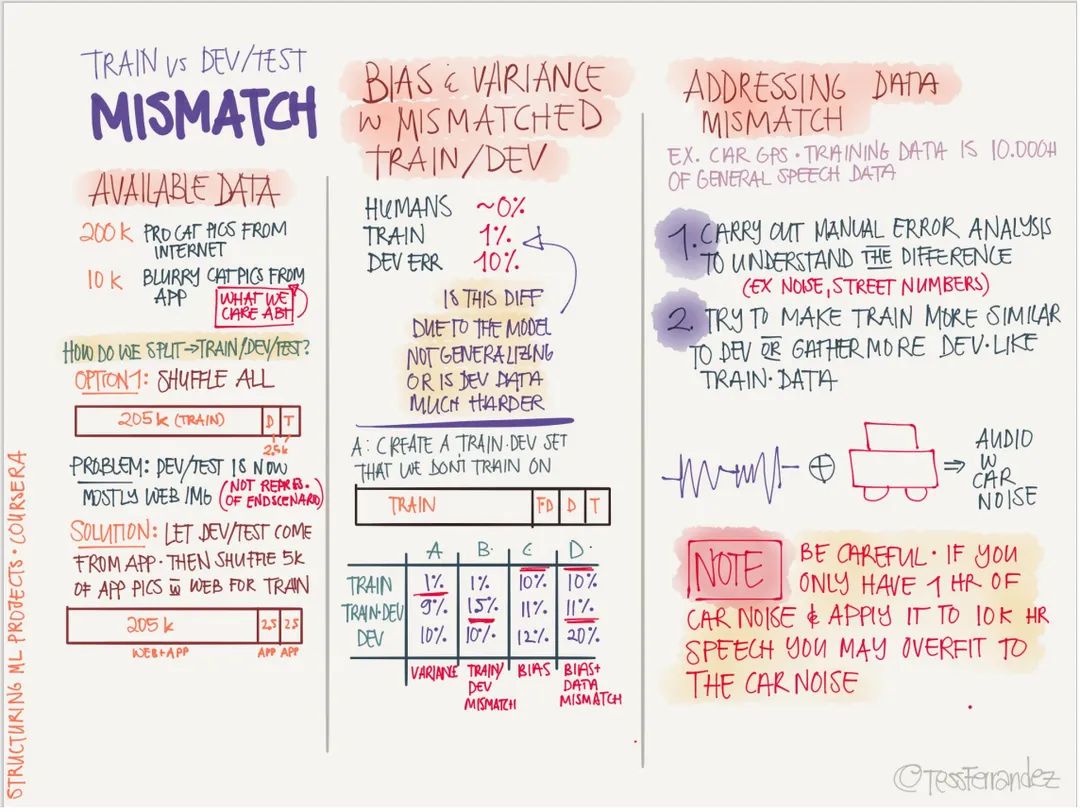 TRAIN VS DEV/TEST
MISMATCH
AVAILABLE DATA
200k PRO CAT PICS FROM
INTERNET
10k BLURRY CAT PICS FROM
APP
WHAT WE
CARE ABT
HOW DO WE SPLIT→TRAIN/DEV/TEST?
OPTION 1: SHUFFLE ALL
205k (TRAIN) D T
2.5k
PROBLEM: DEV/TEST IS NOW
MOSTLY WEB IMG (NOT REPRES.
OF ENDSCENARIO)
SOLUTION: LET DEV/TEST COME
FROM APP. THEN SHUFFLE 5K
OF APP PICS W WEB FOR TRAIN
205k 2.5 2.5
WEB+APP APP APP
BIAS & VARIANCE
W MISMATCHED
TRAIN/DEV
HUMANS ~0%
TRAIN 1%
DEV ERR 10%
IS THIS DIFF
DUE TO THE MODEL
NOT GENERALIZING
OR IS DEV DATA
MUCH HARDER
A: CREATE A TRAIN-DEV SET
THAT WE DON'T TRAIN ON
TRAIN TD D T
A B C D
TRAIN 1% 1% 10% 10%
TRAIN-DEV 9% 1.5% 11% 11%
DEV 10% 10% 12% 20%
VARIANCE TRAIN/ BIAS BIAS+
DEV DATA
MISMATCH MISMATCH
ADDRESSING DATA
MISMATCH
EX. CAR GPS · TRAINING DATA IS 10.000H
OF GENERAL SPEECH DATA
1. CARRY OUT MANUAL ERROR ANALYSIS
TO UNDERSTAND THE DIFFERENCE
(EX NOISE, STREET NUMBERS)
2. TRY TO MAKE TRAIN MORE SIMILAR
TO DEV OR GATHER MORE DEV-LIKE
TRAIN-DATA
AUDIO
W
CAR
NOISE
NOTE BE CAREFUL· IF YOU
ONLY HAVE 1 HR OF
CAR NOISE & APPLY IT TO 10K HR
SPEECH YOU MAY OVERFIT TO
THE CAR NOISE
STRUCTURING ML PROJECTS · COURSERA
©TessFerrandez